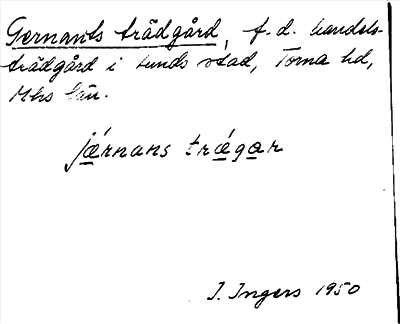 Gernants trädgård, f.d. handels-
trädgård i Lunds stad, Torna hd,
Mhs län.
jærnans trægar
I. Ingers 1950